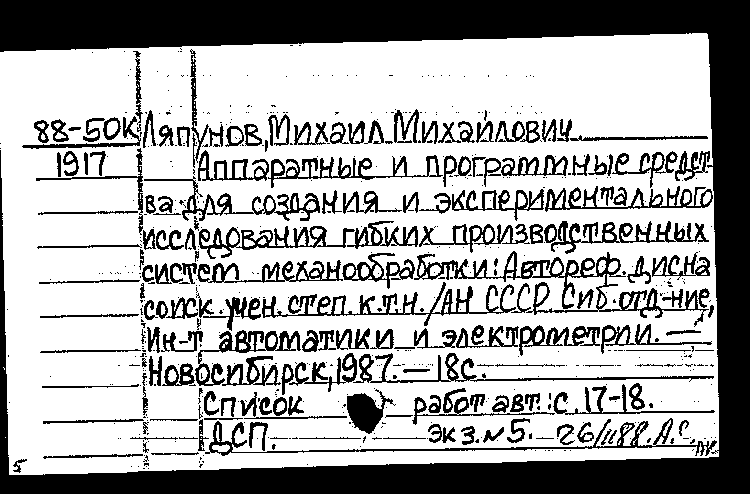 88-50К Ляпунов, Михаил Михайлович
1917 Аппаратные и программные средст-
ва для создания и экспериментального
исследования гибких производственных
систем механообработки: Автореф. дис. на
соиск. учен. степ. к.т.н. / АН СССР. Сиб. отд-ние,
Ин-т автоматики и электрометрии. —
Новосибирск, 1987. — 18с.
Список работ авт.: с. 17-18.
ДСП. экз. №5. А.С.
5